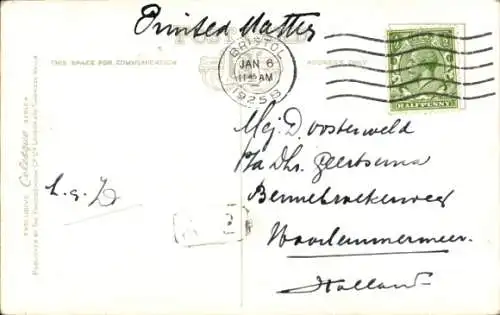 Printed Matter
POST CARD
THIS SPACE FOR COMMUNICATION
ADDRESS ONLY
BRISTOL
JAN 6
11 45 AM
1925 B
HALFPENNY
Mej. D. Oosterveld
p/a Dhr. Geertsema
Bennebroekerweg
Haarlemmermeer.
Holland
EXCLUSIVE Celesque SERIES
PUBLISHED BY THE PHOTOCHROM Co Ltd LONDON AND TUNBRIDGE WELLS